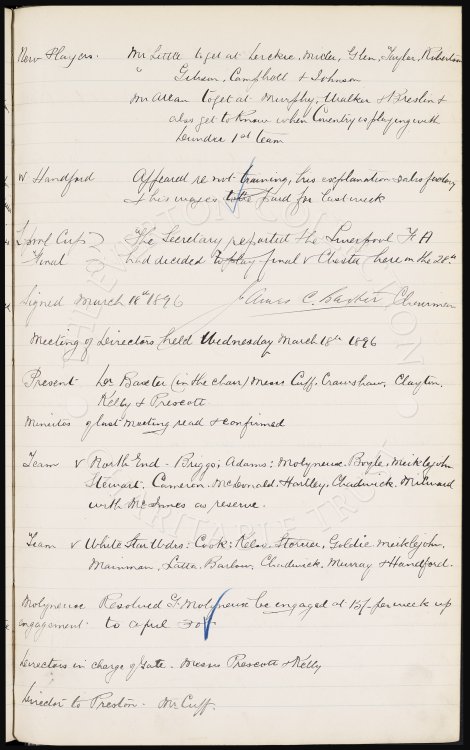 New Players. Mr Little to get at Leckie, Miller, Glen, Taylor, Robertson
" Gibson, Campbell & Johnson
Mr Allan to get at Murphy, Walker & Breslin &
also get to know when Coventry is playing with
Dundee 1st team
W Handford Appeared re not training, his explanation satisfactory
& his wages to be paid for last week
L'pool Cup The Secretary reported the Liverpool F A
Final had decided to play final v Chester here on the 28th
Signed March 18th 1896 James C. Baxter Chairman
Meeting of Directors held Wednesday March 18th 1896
Present Dr Baxter (in the chair) Messrs Cuff, Crawshaw, Clayton,
Kelly & Prescott
Minutes of last meeting read & confirmed
Team v North End - Briggs; Adams: Molyneux. Boyle, Meiklejohn
Stewart. Cameron. McDonald. Hartley, Chadwick. Milward
with McInnes as reserve.
Team v White Star Wdrs: Cook; Kelso, Storrier, Goldie. Meiklejohn.
Mainman, Latta. Barlow, Chadwick. Murray & Handford.
Molyneux Resolved G. Molyneux be engaged at 15/- per week up
engagement. to April 30
Directors in charge of Gate. Messrs Prescott & Kelly
Director to Preston. Mr Cuff.